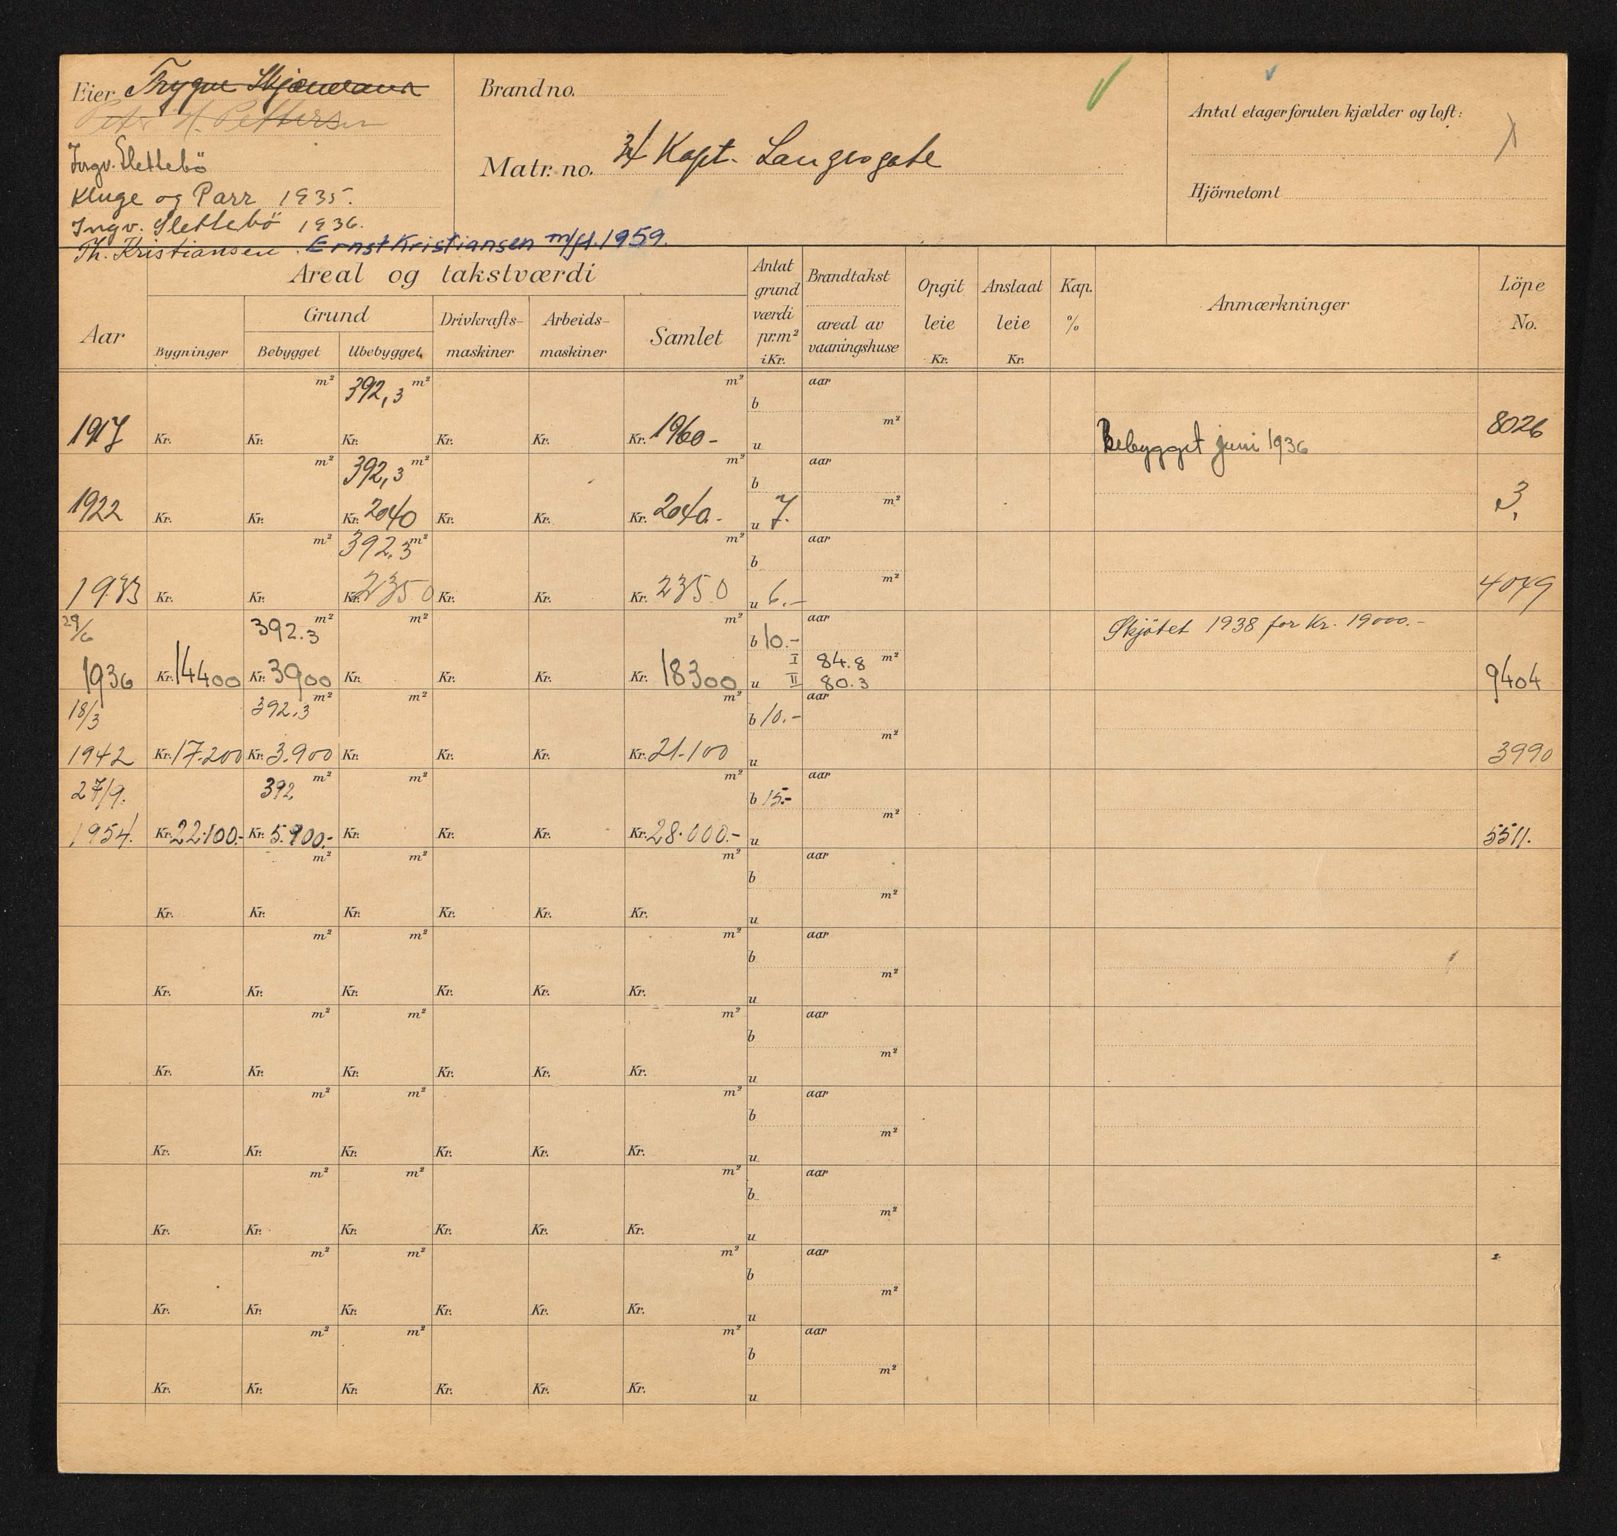 Eier Trygve Skjæveland
Peter H. Pettersen
Ingv. Slettebö
Kluge og Parr 1935.
Ingv. Slettebö 1936.
Th. Kristiansen. Ernst Kristiansen 1959.
Brand no.
Matr. no. Kapt. Langesgate
Antal etager foruten kjælder og loft:
Hjörnetomt
Aar
Areal og takstværdi
Bygninger
Grund
Bebygget Ubebygget
Drivkrafts-
maskiner
Arbeids-
maskiner
Samlet
Antat
grund
værdi
pr.m²
i Kr.
Brandtakst
areal av
vaaningshuse
Opgit
leie
Kr.
Anslaat
leie
Kr.
Kap.
%
Anmærkninger
Löpe
No.
m² 392,3 m² m² aar
b
1917 Kr. Kr. Kr. Kr. Kr. Kr. 1960- u m² Bebygget juni 1936 8026
m² 392,3 m² m² aar
b
1922 Kr. Kr. Kr. 2040 Kr. Kr. Kr. 2040.- u 7. m² 3,
m² 392.3 m² m² aar
b
1933 Kr. Kr. Kr. 2350 Kr. Kr. Kr. 2350 u 6.- m² 4049
29/6 392.3 m² m² m² aar Skjötet 1938 for Kr. 19000.-
b 10.-
I 84.8 m²
1936 Kr. 14400 Kr. 3900 Kr. Kr. Kr. Kr. 18300 u II 80.3 9404
18/3 392.3 m² m² m² aar
b 10.-
1942 Kr. 17.200 Kr. 3.900 Kr. Kr. Kr. Kr. 21.100 u m² 3990
27/9. 392 m² m² m² aar
b 15.-
1954. Kr. 22.100.- Kr. 5.900.- Kr. Kr. Kr. Kr. 28.000.- u m² 5511.
m² m² m² aar
b
Kr. Kr. Kr. Kr. Kr. Kr. u m²
m² m² m² aar
b
Kr. Kr. Kr. Kr. Kr. Kr. u m²
m² m² m² aar
b
Kr. Kr. Kr. Kr. Kr. Kr. u m²
m² m² m² aar
b
Kr. Kr. Kr. Kr. Kr. Kr. u m²
m² m² m² aar
b
Kr. Kr. Kr. Kr. Kr. Kr. u m²
m² m² m² aar
b
Kr. Kr. Kr. Kr. Kr. Kr. u m²
m² m² m² aar
b
Kr. Kr. Kr. Kr. Kr. Kr. u m²